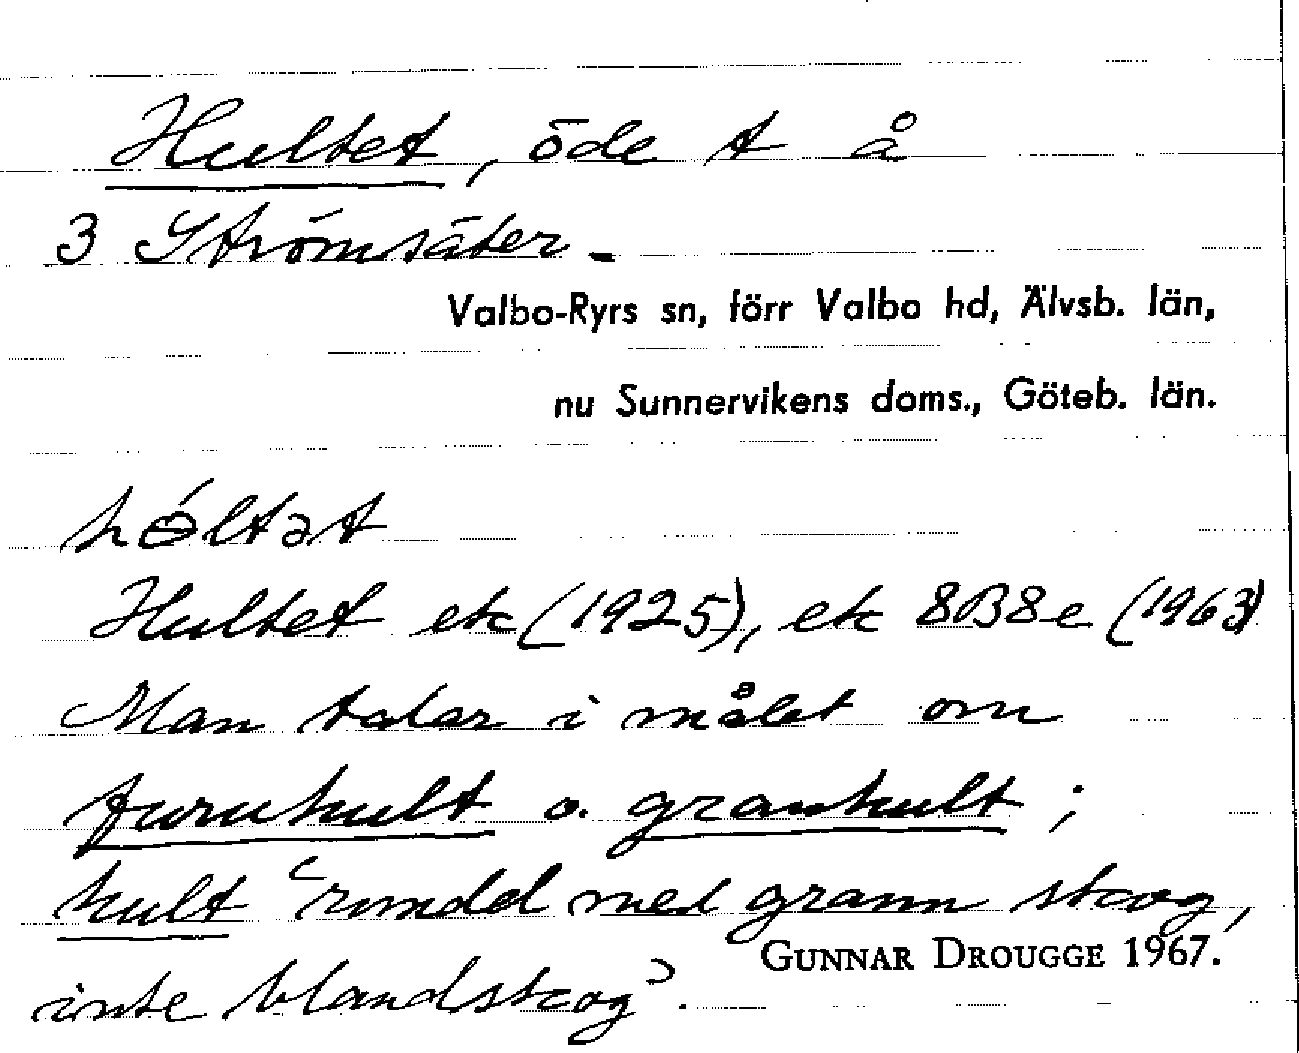 Hultet, öde t å
3 Strömsäter.
Valbo-Ryrs sn, förr Valbo hd, Älvsb. län,
nu Sunnervikens doms., Göteb. län.
hɵ́ltət
Hultet ek (1925), ek 8B8e (1963)
Man talar i målet om
furuhult o. granhult;
hult ‘rundel med grann skog,
GUNNAR DROUGGE 1967.
inte blandskog’.